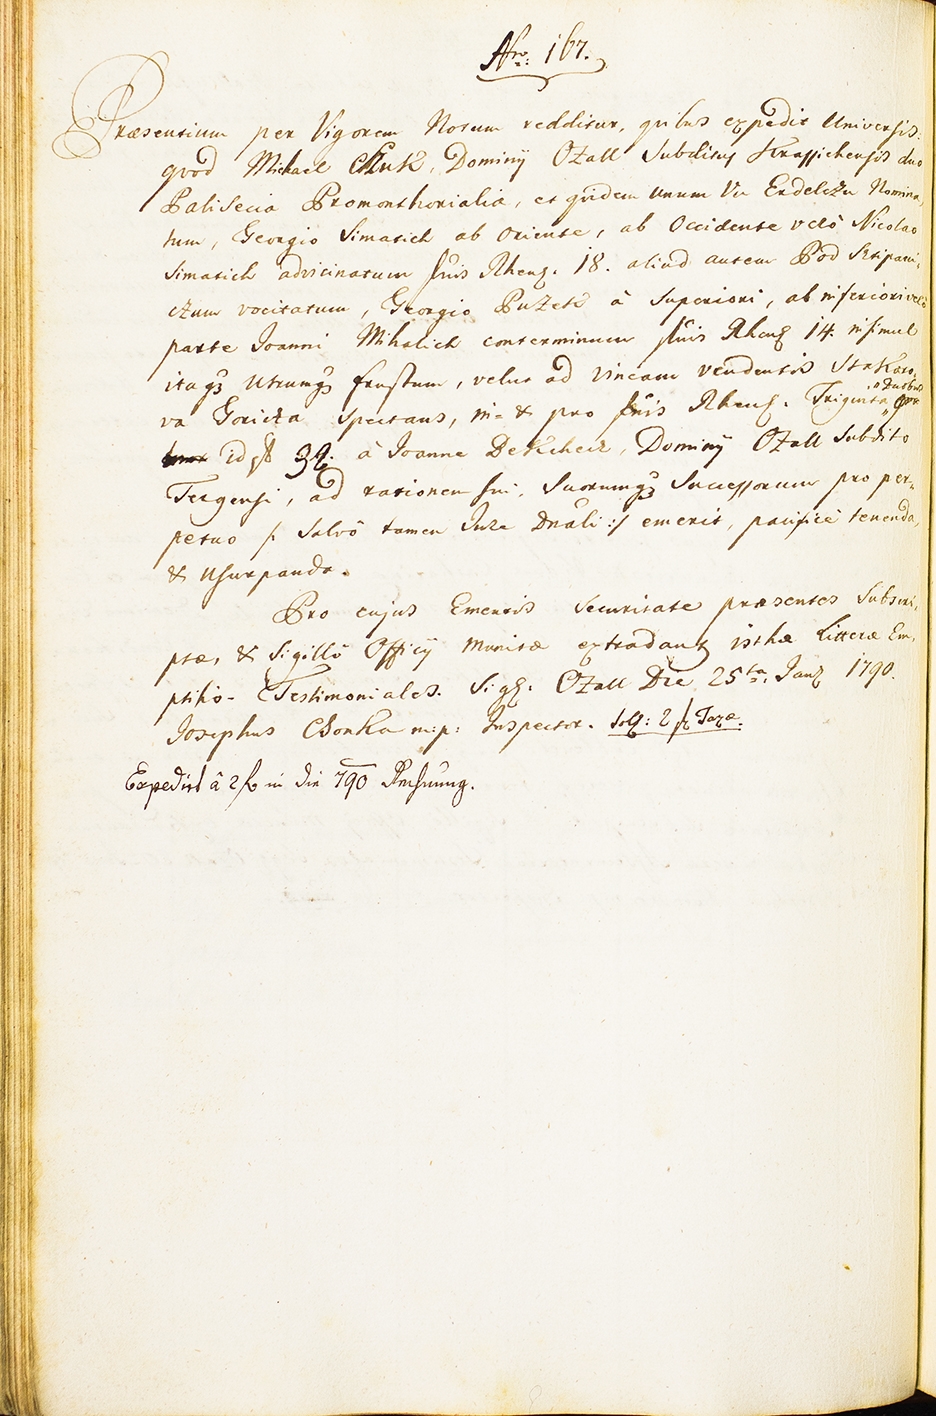 Nro: 167.
Præsentium per Vigorem Notum redditur, quibus expedit Universis.
quod Michael Chuk, Dominÿ Ozall Subditus Krassichensis duo
Palisecia Promonthorialia, et quidem unum Vu Erdelczu Nomina,
tum, Georgio Simatich ab Oriente, ab Occidente verò Nicolao
Simatich advicinatum flnis Rheng. 18. aliud autem Pod Stipani,
czum vocitatum, Georgio Puzek à Superiori, ab inferiori verò
parte Joanni Mihalich conterminum flnis Rheng 14. insimul
itaq3 utrumq3 frustum, velut ad vineam vendentis Stakoro,
va Goricza Spectans, in & pro flnis Rheng. Triginta duobus
id est 32. à Joanne Dekchech, Dominÿ Ozall Subdito
Tergensi, ad rationem sui, Suorumq3 Successorum pro per,
petuo /: Salvô tamen Jure Dnâli :/ emerit, pacificè tenenda,
& Usurpanda.
Pro cujus Emenris Securitate præsentes Subscri,
ptæ, & Sigillô Officÿ Munitæ extradantur isthæ Litteræ Em,
ptitio-Testimoniales. Sigl. Ozall Die 25ta. Janr 1790.
Josephus Chonka m:p: Inspector. Solt: 2 f Taxæ.
Expedirt â 2 f in die 790 Rechnung.